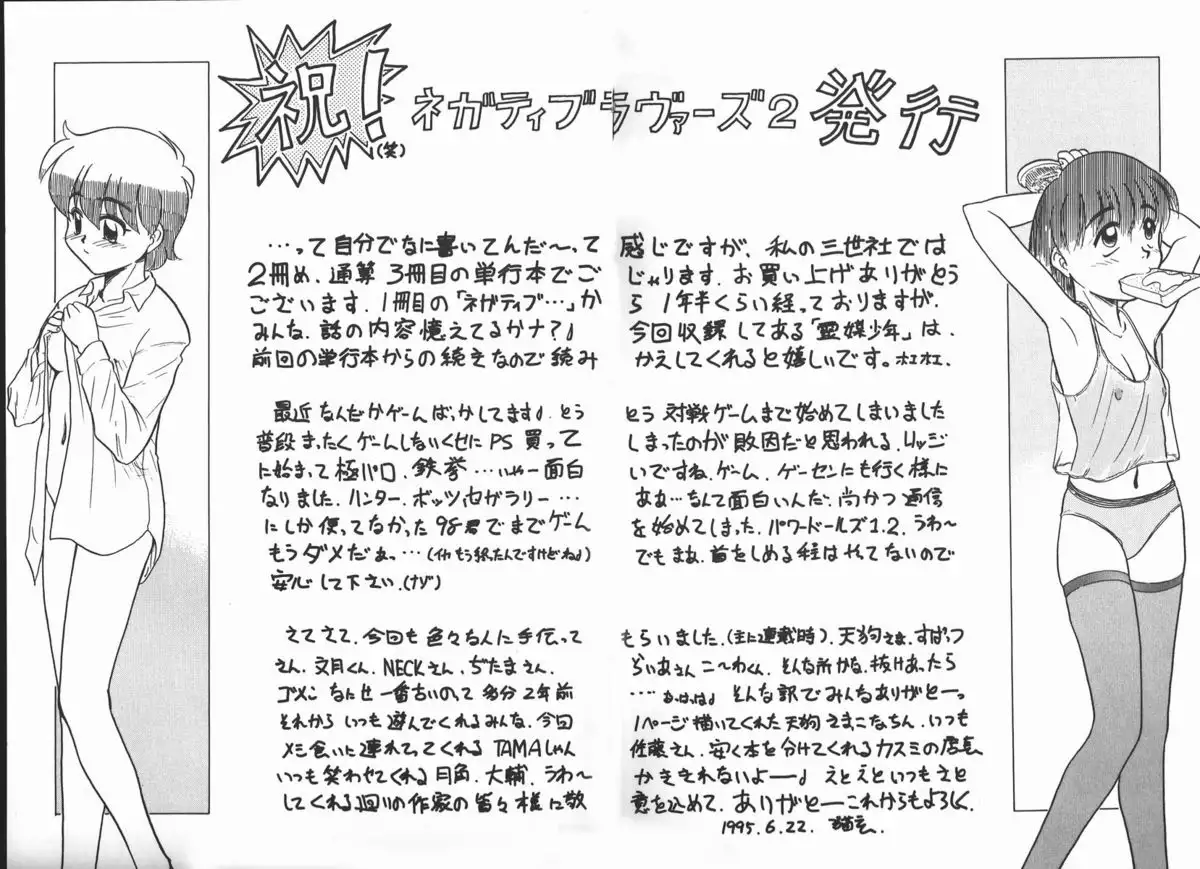 祝!
(笑)
ネガティブラヴァーズ2 発行
…って自分でなに書いてんだ〜って感じですが、私の三世社では
2冊め、通算3冊目の単行本でごじゃります。お買い上げありがとう
ございます。1冊目の「ネガティブ…」から1年半くらい経っておりますが、
みんな、話の内容憶えてるかナ?♩今回収録してある「霊媒少年」は、
前回の単行本からの続きなので読みかえしてくれると嬉しいです。ホエホエ。
最近なんだかゲームばっかしてます♩とうとう対戦ゲームまで始めてしまいました
普段まったくゲームしないくせにPS買ってしまったのが敗因だと思われる。リッジ
に始まって極パロ、鉄拳…いやー面白いですね、ゲーム、ゲーセンにも行く様に
なりました。ハンター、ボッツ、セガラリー…ああ…なんて面白いんだ、尚かつ通信
にしか使ってなかった98君でまでゲームを始めてしまった。パワードールズ1.2。うわ〜
もうダメだぁっ…(イヤもう終ったんですけどね♩)でもまぁ、首をしめる程はやってないので
安心して下さい。(ナゾ)
さてさて、今回も色々な人に手伝ってもらいました。(主に連載時)、天狗さま、すぱっつ
さん、文月くん、NECKさん、ぢたまさん、らいあさん こ〜わくん、そんな所かな、抜けあったら
ゴメンこ なんせ一番古いのって多分2年前…あっはっは♩ そんな訳でみんなありがとーっ
それから いつも遊んでくれるみんな、今回1ページ描いてくれた天狗さまこなちん、いつも
メシ食いに連れてってくれるTAMAしゃん 佐藤さん、安く本を分けてくれるカスミの店長
いつも笑わせてくれる月角、大輔、うわ〜かききれないよー♩ えとえといつもさと
してくれる廻りの作家の皆々様に敬意を込めて、ありがとーこれからもよろしく。
1995.6.22.